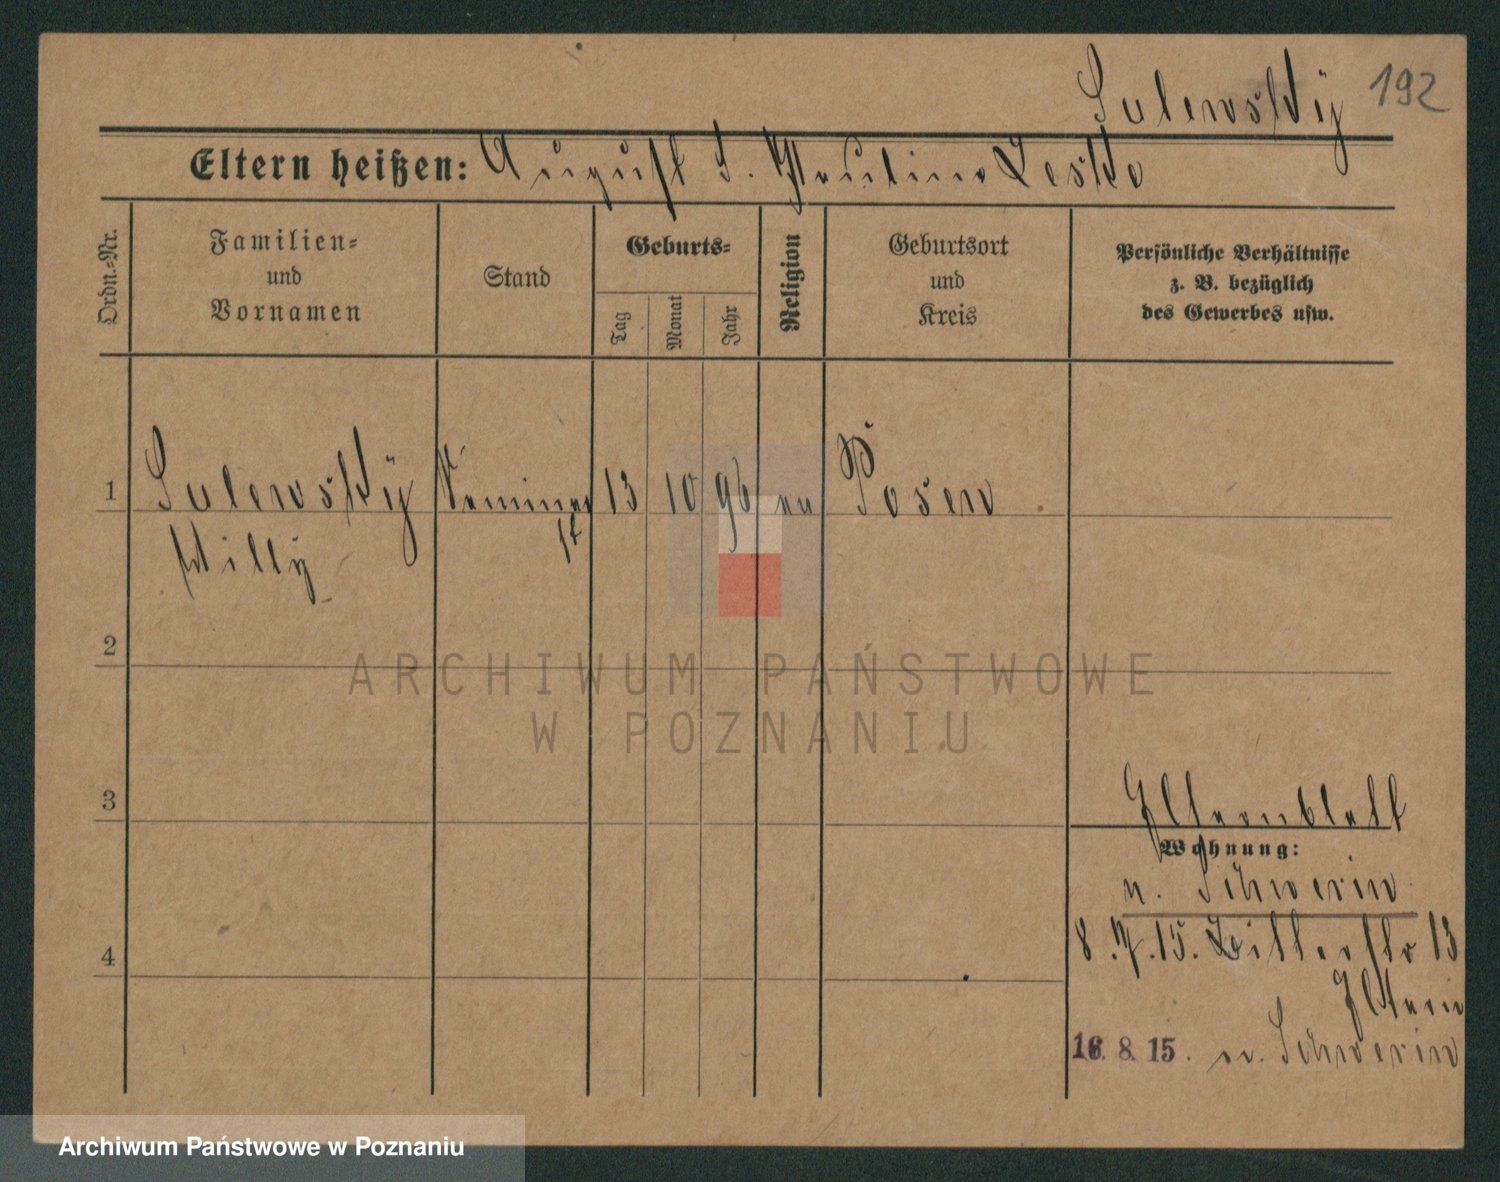 Sulewsky 192
Eltern heißen: August u. Pauline Leske
Ordn.-Nr.
Familien-
und
Vornamen
Stand
Geburts-
Tag
Monat
Jahr
Religion
Geburtsort
und
Kreis
Persönliche Verhältnisse
z. B. bezüglich
des Gewerbes usw.
1 Sulewsky Seminar 13 10 96 ev Posen
ist
Willy
2
3
4
Elternblatt
Wohnung:
n. Schwerin
8.7.15. Bitterstr 13
Eltern
16. 8. 15. n. Schwerin
ARCHIWUM PAŃSTWOWE
W POZNANIU
Archiwum Państwowe w Poznaniu